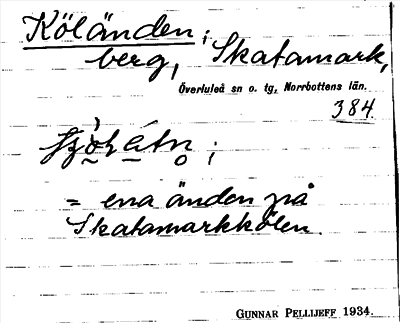 Köländen;
berg, Skatamark,
Överluleå sn o. tg, Norrbottens län.
384
= ena änden på
Skatamarkkölen.
GUNNAR PELLIJEFF 1934.